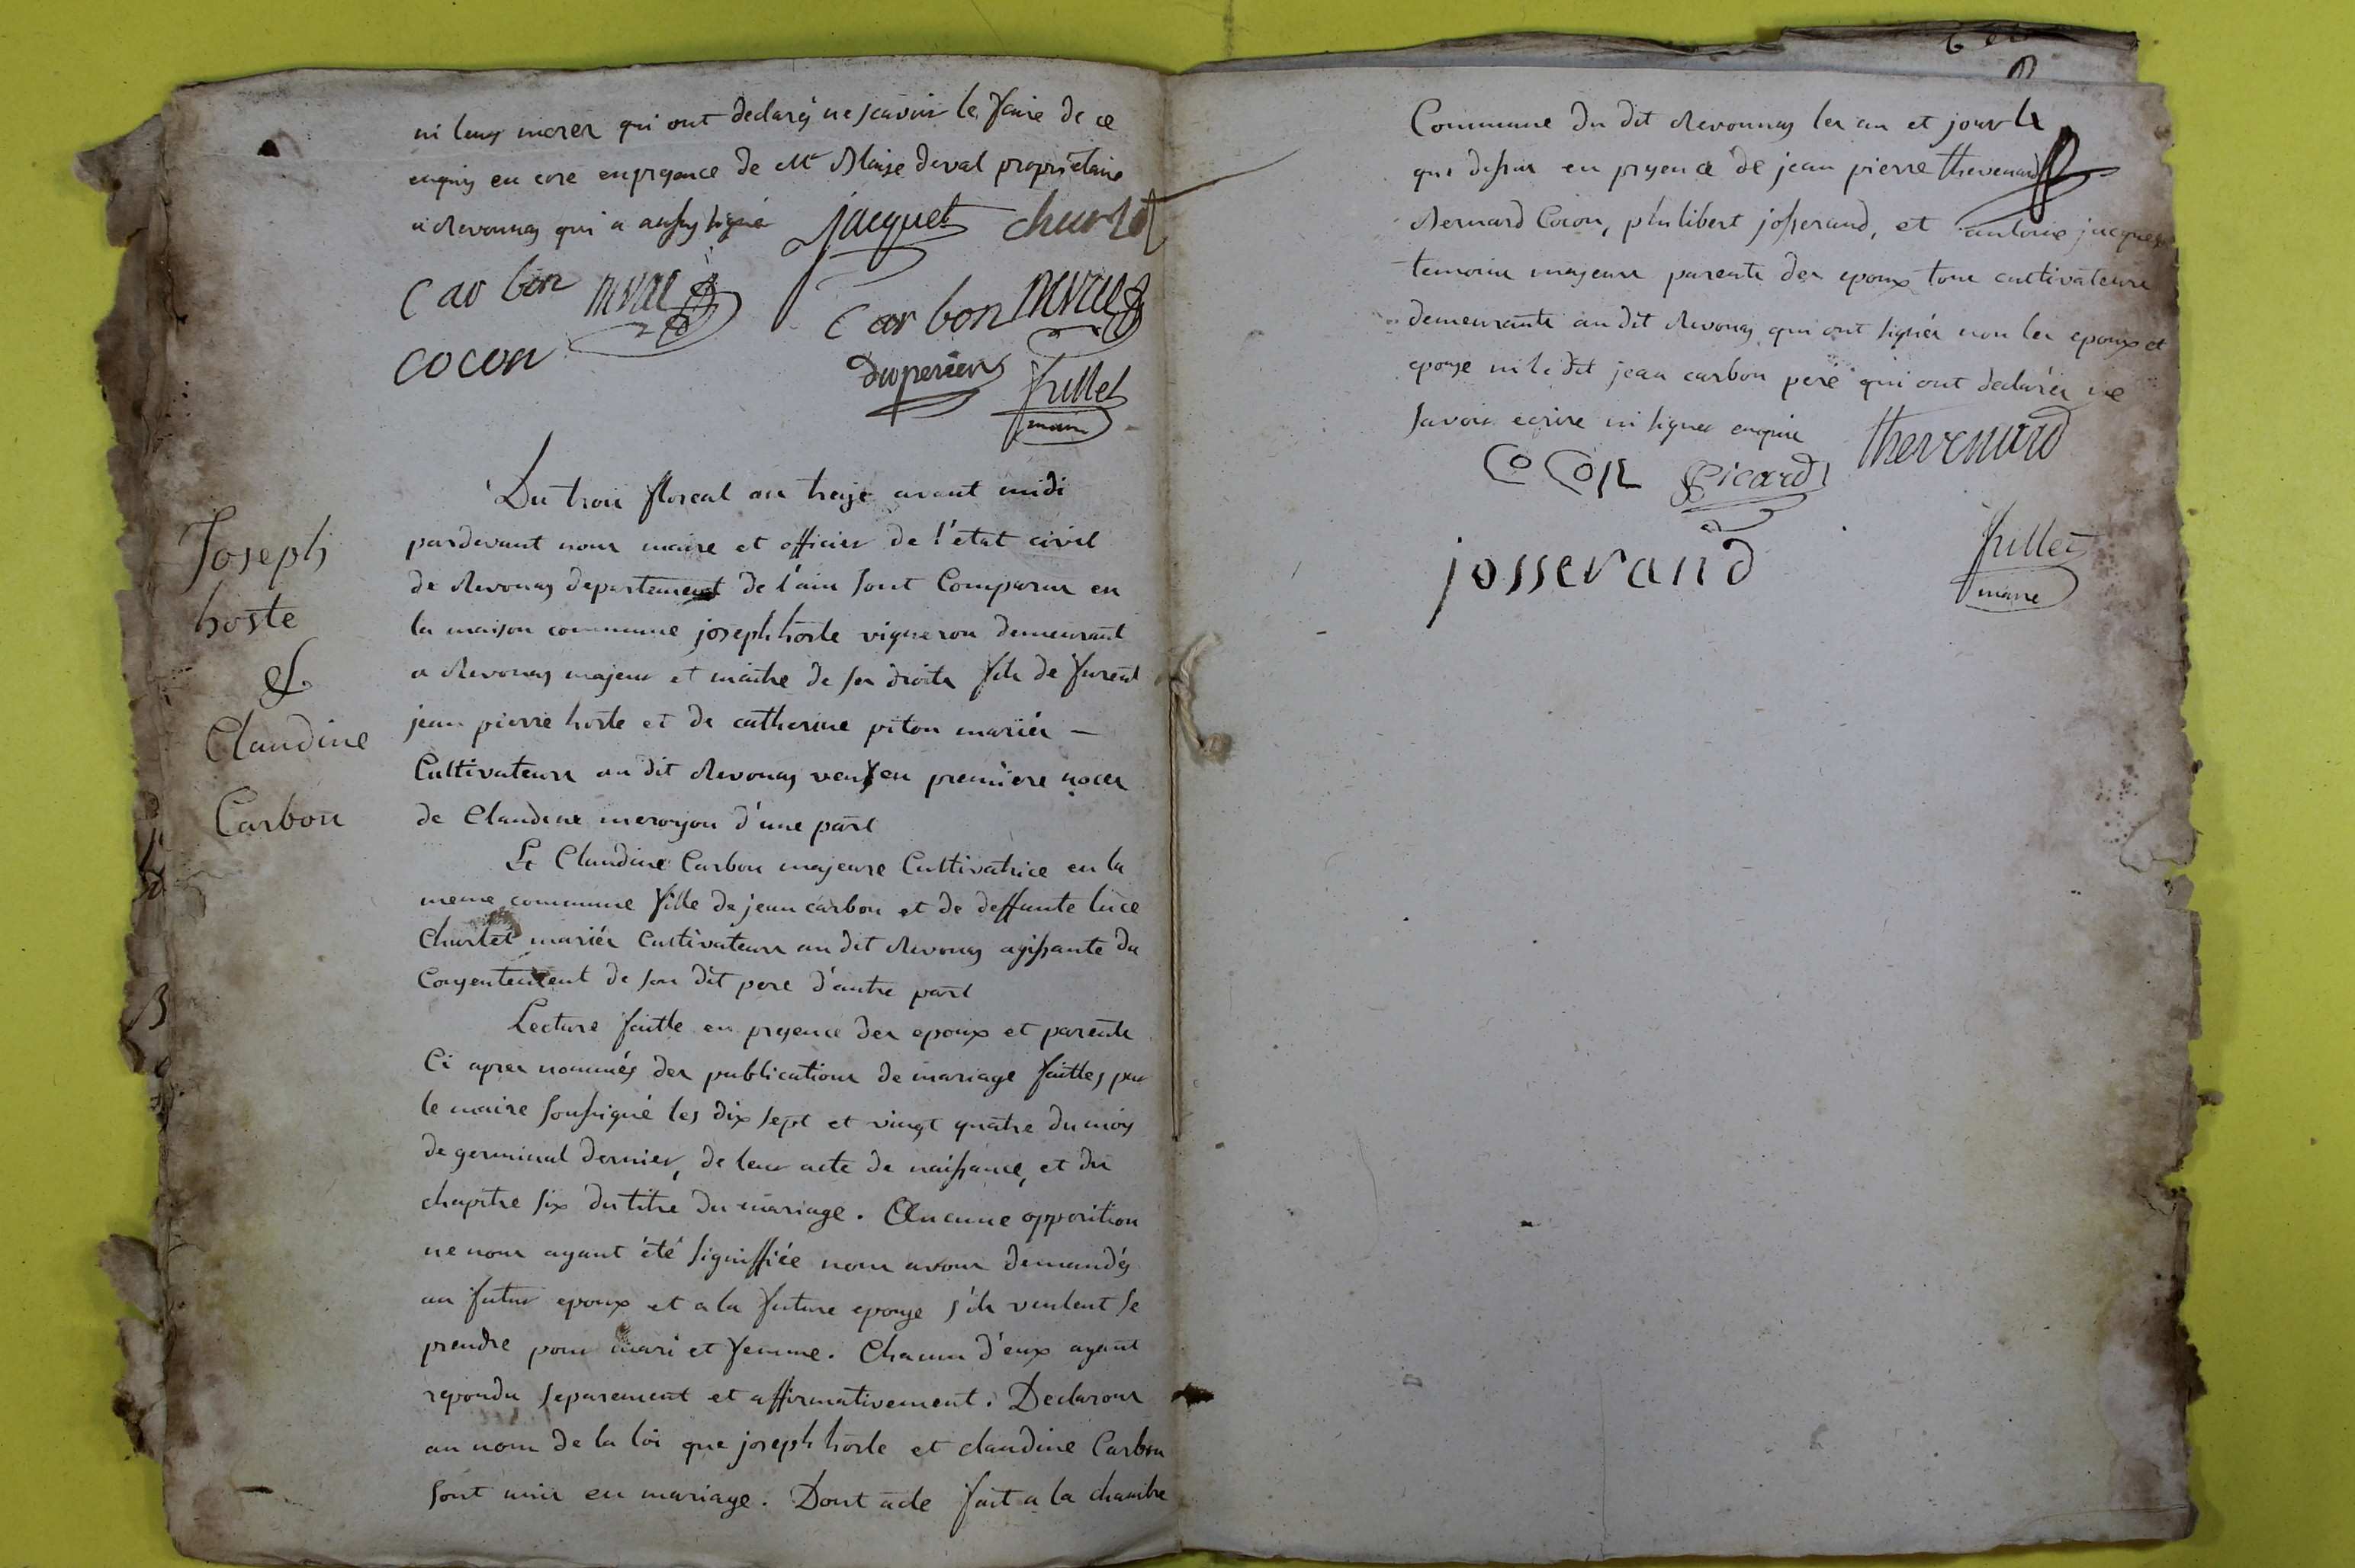 ni leurs meres qui ont declarés ne scavoir le faire de ce
enquis encore en presence de Mr Blaise deval proprietaire
a Revonnas qui a aussy signé jacquet churlet
Carbon Carbon
cocon
duperier
hillet
maire
Joseph
hoste
&
Claudine
Carbon
Du trois floreal an treize avant midi
pardevant nous maire et officier de l'état civil
de Revonas departement de l'ain sont Comparus en
la maison commune joseph hoste vigneron demeurant
a Revonas majeur et maitre de ses droits fils de
jean pierre hoste et de catherine piton mariés —
Cultivateurs au dit Revonas veuf en premiere noces
de Claudine d'une part
Et Claudine Carbon majeure Cultivatrice en la
meme commune fille de jean carbon et de deffunte luce
Churlet mariés Cultivateurs au dit Revonas agissante du
Consentement de son dit pere d'autre part
Lecture faitte en presence des epoux et parents
Ci apres nommés des publications de mariage faittes par
le maire soussigné les dix sept et vingt quatre du mois
de germinal dernier, de leur acte de naissance, et du
chapitre six du titre du mariage. Aucune opposition
ne nous ayant été signiffiée nous avons demandés
au futur epoux et a la future epouse s'ils veulent se
prendre pour mari et femme. Chacun d'eux ayant
repondu separement et affirmativement. Declarons
au nom de la loi que joseph hoste et claudine Carbon
sont unis en mariage. Dont acte fait a la chambre
Commune du dit Revonnas les an et jour
que dessus en presence de jean pierre thevenard
Bernard Cocon, philibert josserand, et antoine jacquet
temoins majeurs parents des epoux tous cultivateurs
demeurants au dit Revonas qui ont signés non les epoux et
epouse ni le dit jean carbon pere qui ont declarés ne
savoir ecrire ni signer enquis thevenard
COCON picard
josserand
hillet
maire